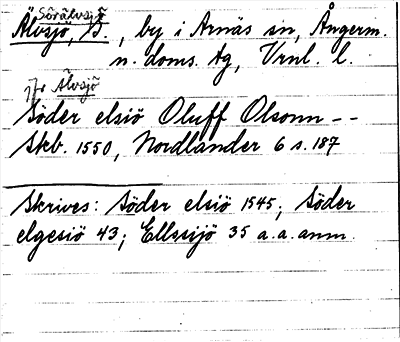 Sörälvsjö
Älvsjö, S., by i Arnäs sn, Ångerm.
n. doms. tg, Vrnl. l.
Jfr Älvsjö
Söder elsiö Oluff Olsonn --
Skb. 1550, Nordlander 6 s. 187
Skrives: Söder elsiö 1545; Söder
elgesiö 43; Ellssijö 35 a.a. anm.